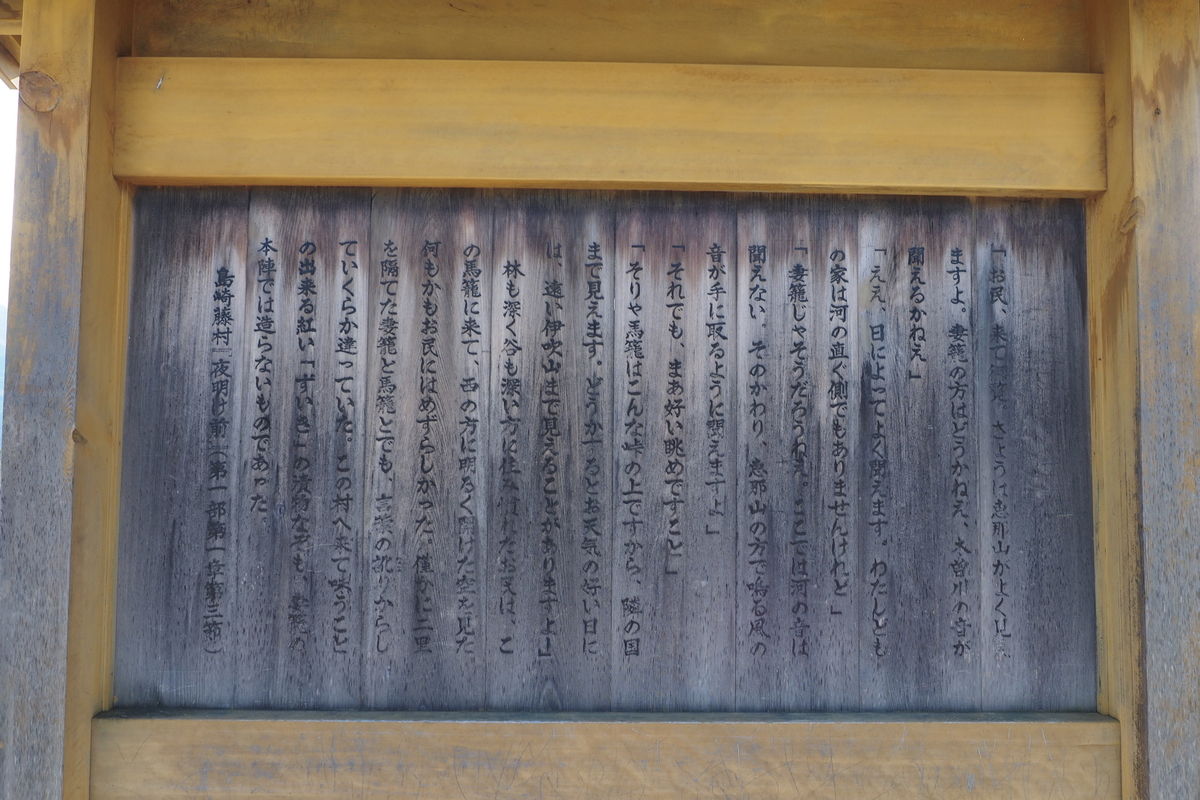 「お民、来て御覧、きょうは恵那山がよく見え
ますよ。妻籠の方はどうかねえ、木曽川の音が
聞えるかねえ」
「ええ、日によってよく聞えます。わたしども
の家は河の直ぐ側でもありませんけれど」
「妻籠じゃそうだろうねえ。ここでは河の音は
聞えない。そのかわり、恵那山の方で鳴る風の
音が手に取るように聞えますよ」
「それでも、まあ好い眺めですこと」
「そりゃ馬籠はこんな峠の上ですから、隣の国
まで見えます。どうかするとお天気の好い日に
は、遠い伊吹山まで見えることがありますよ」
林も深く谷も深い方に住み慣れたお民は、こ
の馬籠に来て、西の方に明るく開けた空を見た
何もかもお民にはめずらしかった。僅かに二里
を隔てた妻籠と馬籠とでも、言葉の訛りからし
ていくらか違っていた。この村へ来て味うこと
の出来る紅い「ずいき」の漬物なぞも、妻籠の
本陣では造らないものであった。
島崎藤村『夜明け前』（第一部第一章第三節）